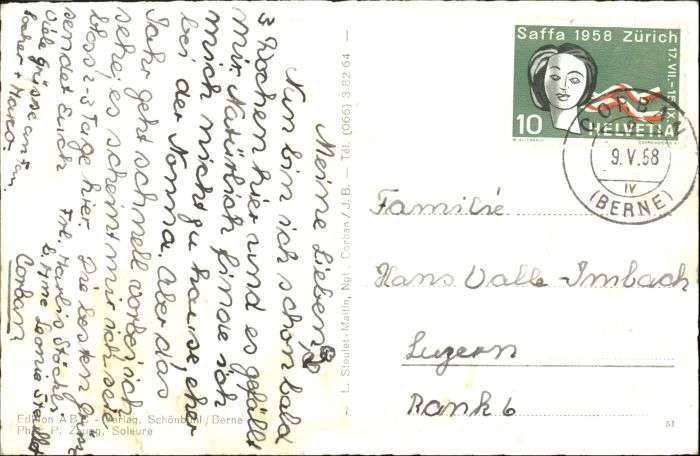 Meine Lieben,
Nun bin ich schon bald
3 Wochen hier und es gefällt
mir. Natürlich finde ich
mich nicht zu hause, eher
bei der Nonna. Aber das
Jahr geht schnell vorbei ich
sehe, es scheint mir ich sei
bloss 2-3 Tage hier. Die besten Grüsse
sendet Euch Frl. Marlis Stöckli
b. Mme Leonie
Corban
Viele Grüsse an
+ Marco.
Edition A B - Verlag, Schönbühl/Berne
Phot. P. Zaugg, Soleure
— L. Steulet-Maitin, Ngt. Corban/J.B. — Tél. (066) 3.82 64 —
Saffa 1958 Zürich
17. VII.-15.IX.
10 HELVETIA
CORBAN
9.V.58
IV
(BERNE)
Familie
Hans Valle-Imbach
Luzern
Rank 6
51